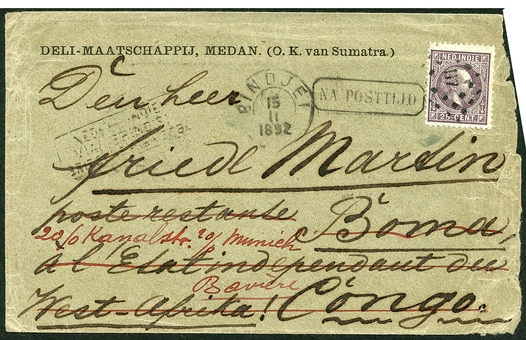 DELI-MAATSCHAPPIJ, MEDAN. (O. K. van Sumatra.)
NED. INDIE
25 CENT
BINDJEI
15
11
1892
NA POSTTIJD
Den heer
Friedl Martin
poste restante Boma,
20/0 Kanalstr. Munich
al Etat indépendant du
Baviere
West-Afrika! Congo.